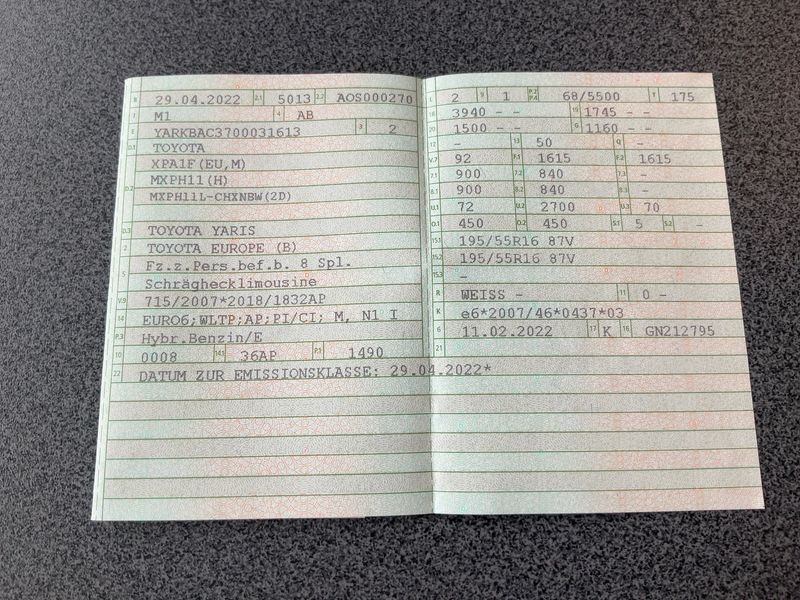 B 29.04.2022 2.1 5013 2.2 AOS000270
J M1 4 AB
E YARKBAC3700031613 3 2
D.1 TOYOTA
XPA1F(EU,M)
D.2 MXPH11(H)
MXPH11L-CHXNBW(2D)
D.3 TOYOTA YARIS
2 TOYOTA EUROPE (B)
5 Fz.z.Pers.bef.b. 8 Spl.
Schräghecklimousine
V.9 715/2007*2018/1832AP
14 EURO6;WLTP;AP;PI/CI; M, N1 I
P.3 Hybr.Benzin/E
10 0008 14.1 36AP P.1 1490
22 DATUM ZUR EMISSIONSKLASSE: 29.04.2022*
L 2 9 1 P.2 P.4 68/5500 T 175
18 3940 - - 19 1745 - -
20 1500 - - G 1160 - -
12 - 13 50 Q -
V.7 92 F.1 1615 F.2 1615
7.1 900 7.2 840 7.3 -
8.1 900 8.2 840 8.3 -
U.1 72 U.2 2700 U.3 70
O.1 450 O.2 450 S.1 5 S.2 -
15.1 195/55R16 87V
15.2 195/55R16 87V
15.3 -
R WEISS - 11 0 -
K e6*2007/46*0437*03
6 11.02.2022 17 K 16 GN212795
21